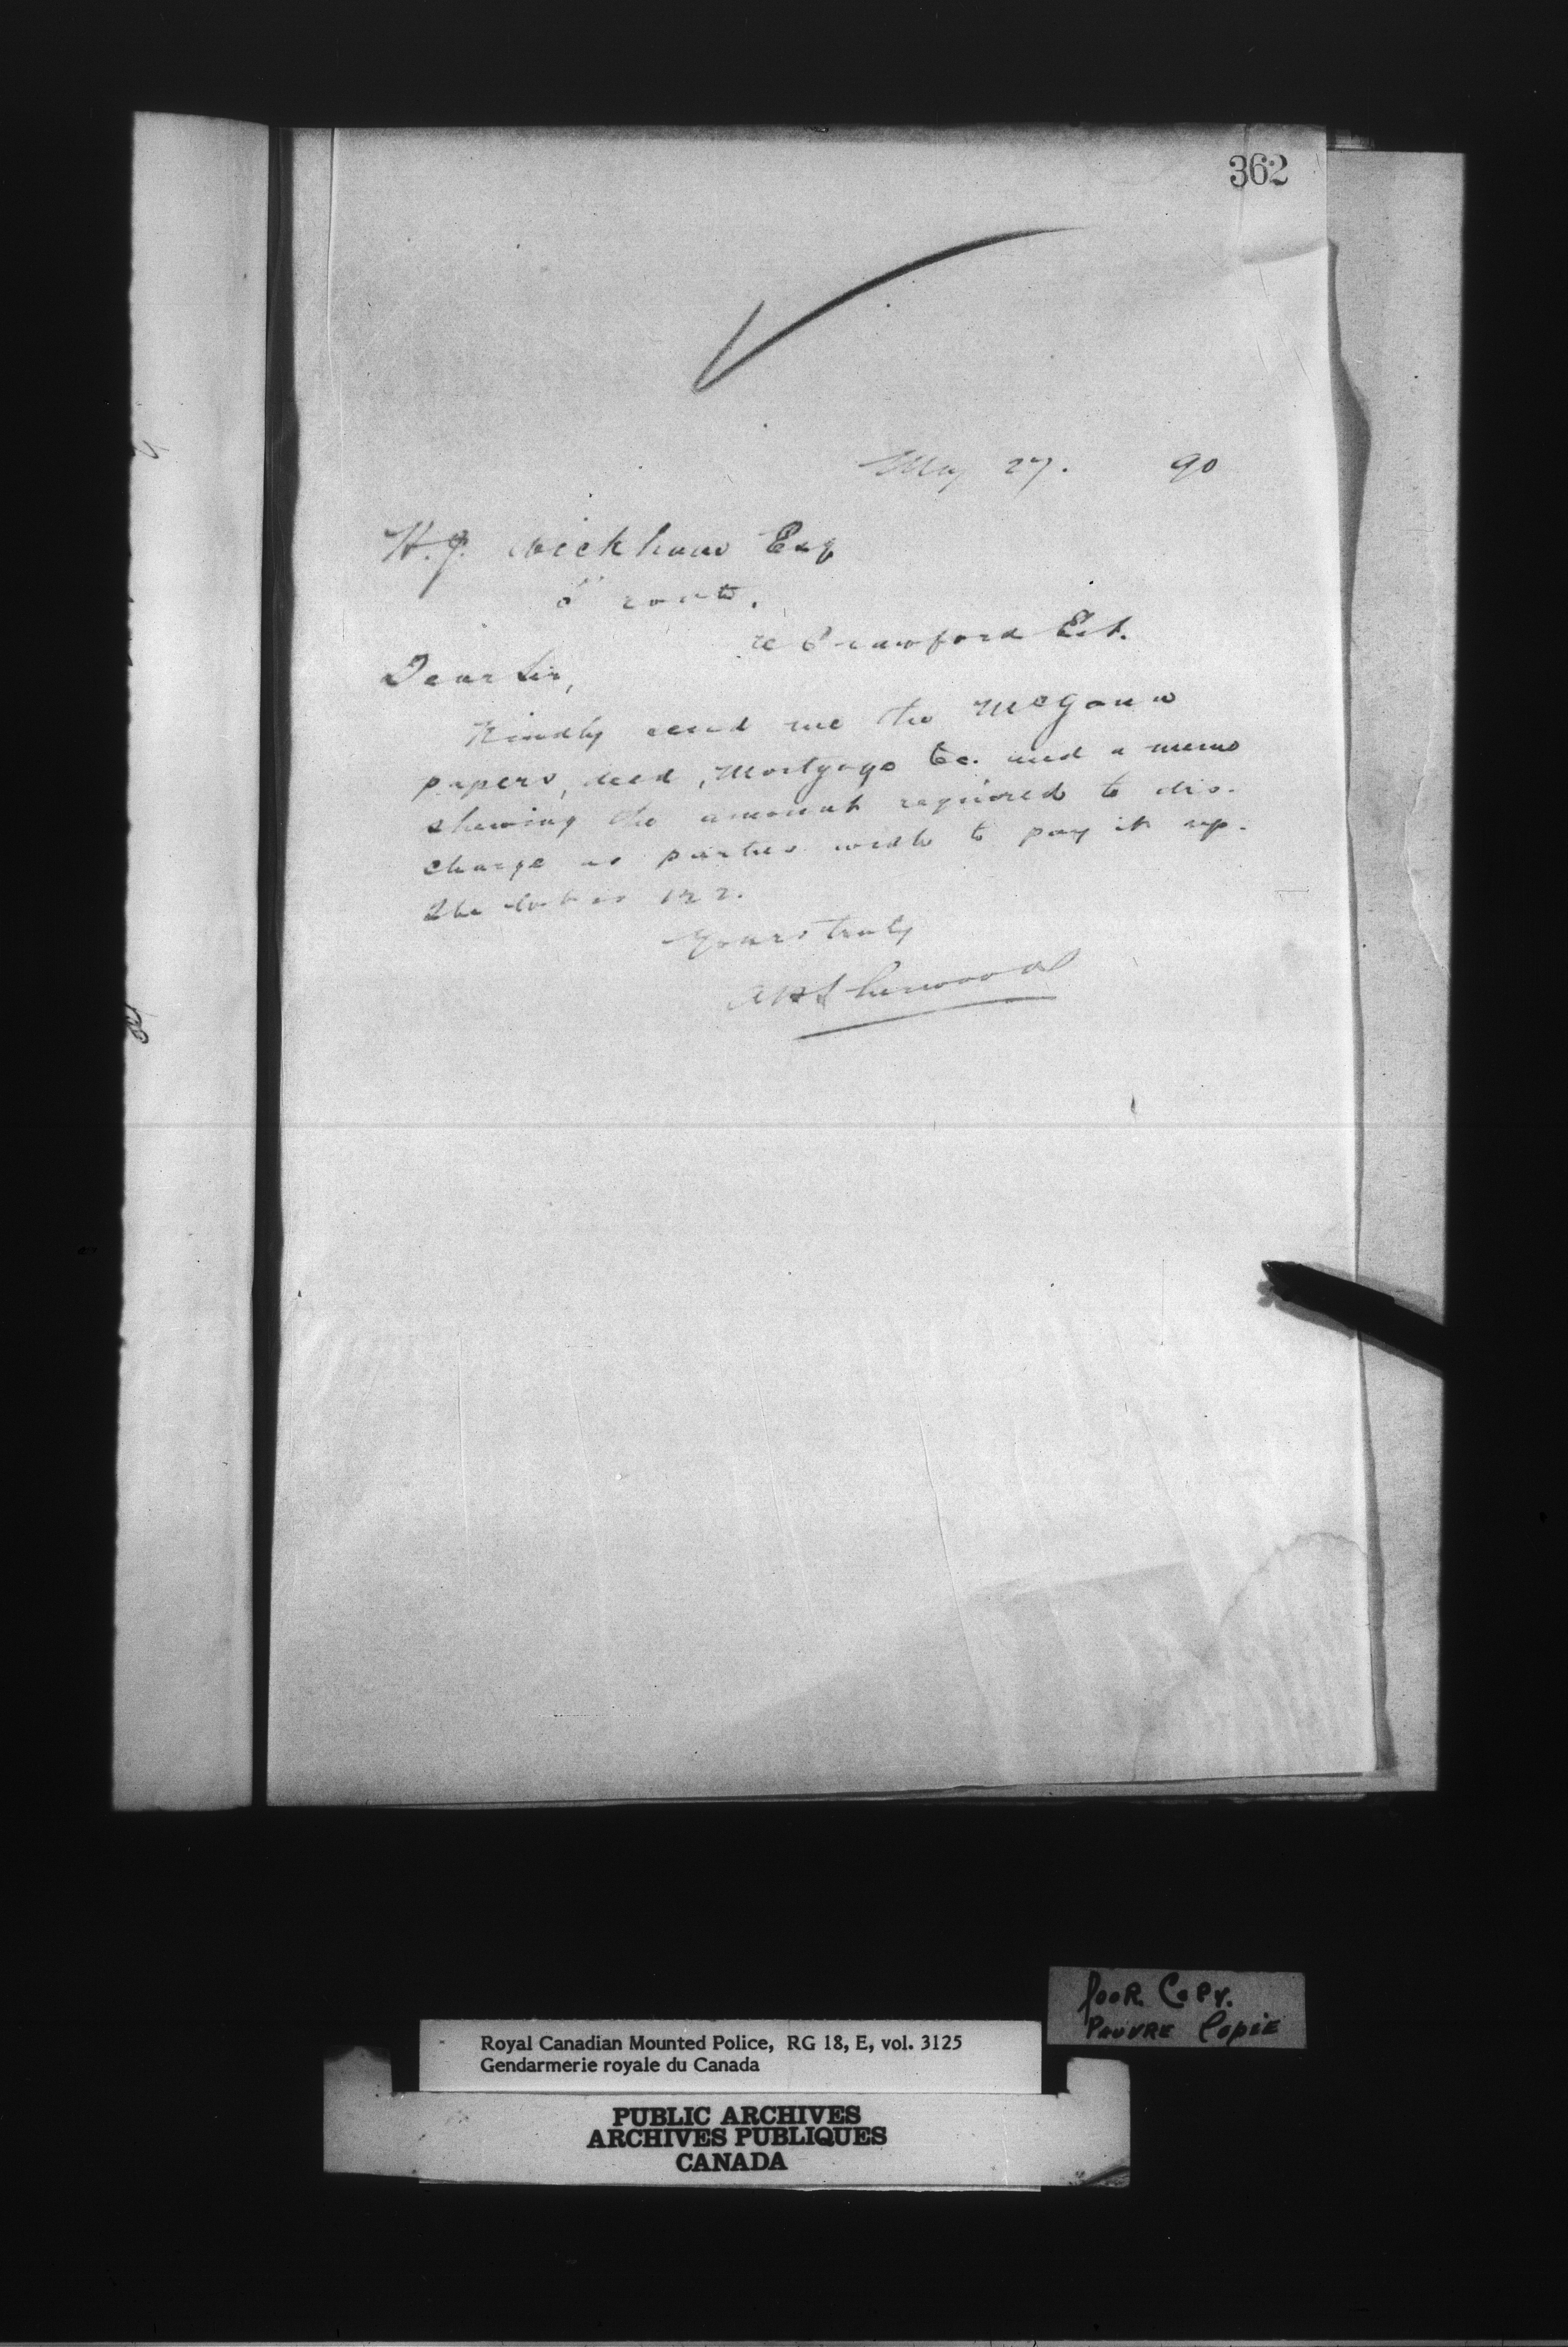 362
May 27. 90
H.J. Wickham Esq
Toronto.
re Crawford Est.
Dear Sir,
Kindly send me the McGann
papers, deed, Mortgage &c. and a memo
shewing the amount required to dis-
charge as parties wish to pay it up.
The lot is 122.
Yours truly
A P Sherwood
Poor Copy.
Pauvre Copie
Royal Canadian Mounted Police, RG 18, E, vol. 3125
Gendarmerie royale du Canada
PUBLIC ARCHIVES
ARCHIVES PUBLIQUES
CANADA